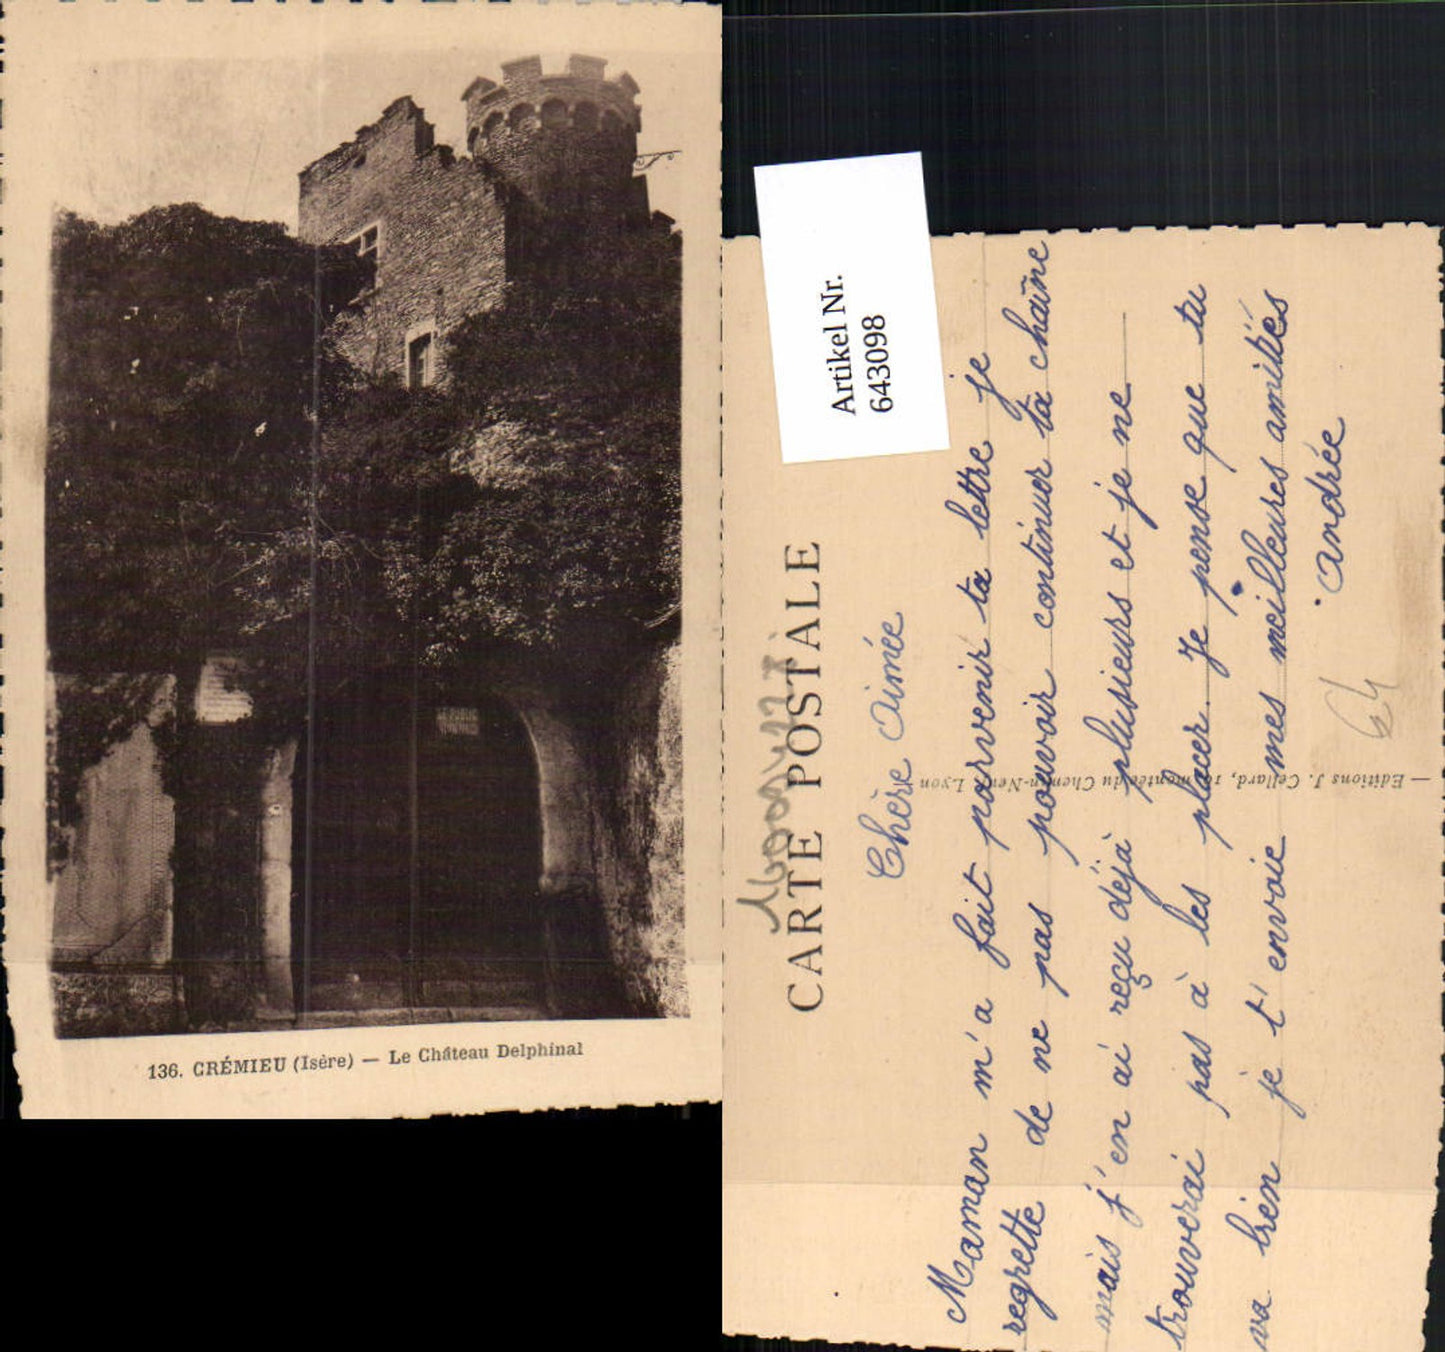 136. CRÉMIEU (Isère) — Le Château Delphinal
Artikel Nr.
643098
CARTE POSTALE
Chère Aimée
Maman m'a fait parvenir ta lettre je
regrette de ne pas pouvoir continuer ta chaîne
mais j'en ai reçu déjà plusieurs et je ne
trouverai pas à les placer. Je pense que tu
va bien je t'envoie mes meilleures amitiés
Andrée
64
— Editions J. Cellard, montée du Chemin-Neuf, Lyon